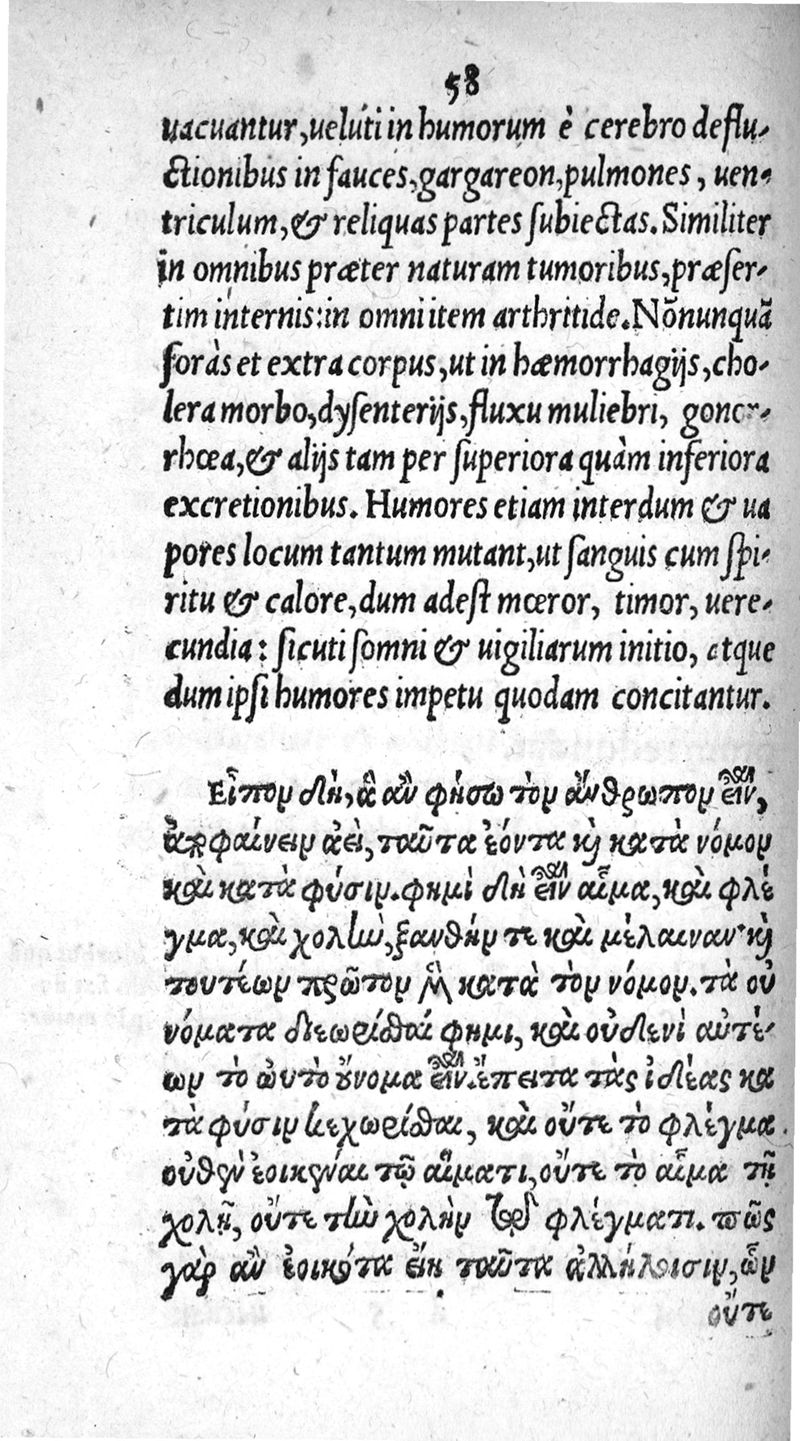 58
uacuantur,uelúti in humorum è cerebro deflu-
ctionibus in fauces,gargareon,pulmones, uen-
triculum,& reliquas partes ſubiectas. Similiter
in omnibus præter naturam tumoribus,præſer-
tim internis:in omni item arthritide.Nõnunquã
foràs et extra corpus,ut in hæmorrhagijs,cho-
lera morbo,dyſenterijs,fluxu muliebri, gonor-
rhœa,& alijs tam per ſuperiora quàm inferiora
excretionibus. Humores etiam interdum & ua
pores locum tantum mutant,ut ſanguis cum ſpi-
ritu & calore,dum adeſt mœror, timor, uere-
cundia: ſicuti ſomni & uigiliarum initio, atque
dum ipſi humores impetu quodam concitantur.
Εἶπον δὴ,ἃ ἂν φήσω τὸν ἄνθρωπον εἶναι,
ἀποφαίνειν ἀεὶ,ταῦτα ἐόντα καὶ κατὰ νόμον
καὶ κατὰ φύσιν.φημὶ δὴ εἶναι αἷμα,καὶ φλέ
γμα,καὶ χολὴν,ξανθήν τε καὶ μέλαιναν·καὶ
τουτέων πρῶτον μὲν κατὰ τὸν νόμον.τὰ οὐ
νόματα διωρίσθαί φημι, καὶ οὐδενὶ αὐτέ-
ων τὸ ὠυτὸ οὔνομα εἶναι.ἔπειτα τὰς ἰδέας κα
τὰ φύσιν κεχωρίσθαι, καὶ οὔτε τὸ φλέγμα
οὐθὲν ἐοικέναι τῷ αἵματι,οὔτε τὸ αἷμα τῇ
χολῇ, οὔτε τὴν χολὴν τῷ φλέγματι. πῶς
γὰρ ἂν ἐοικότα εἴη ταῦτα ἀλλήλοισιν,ὧν
οὔτε